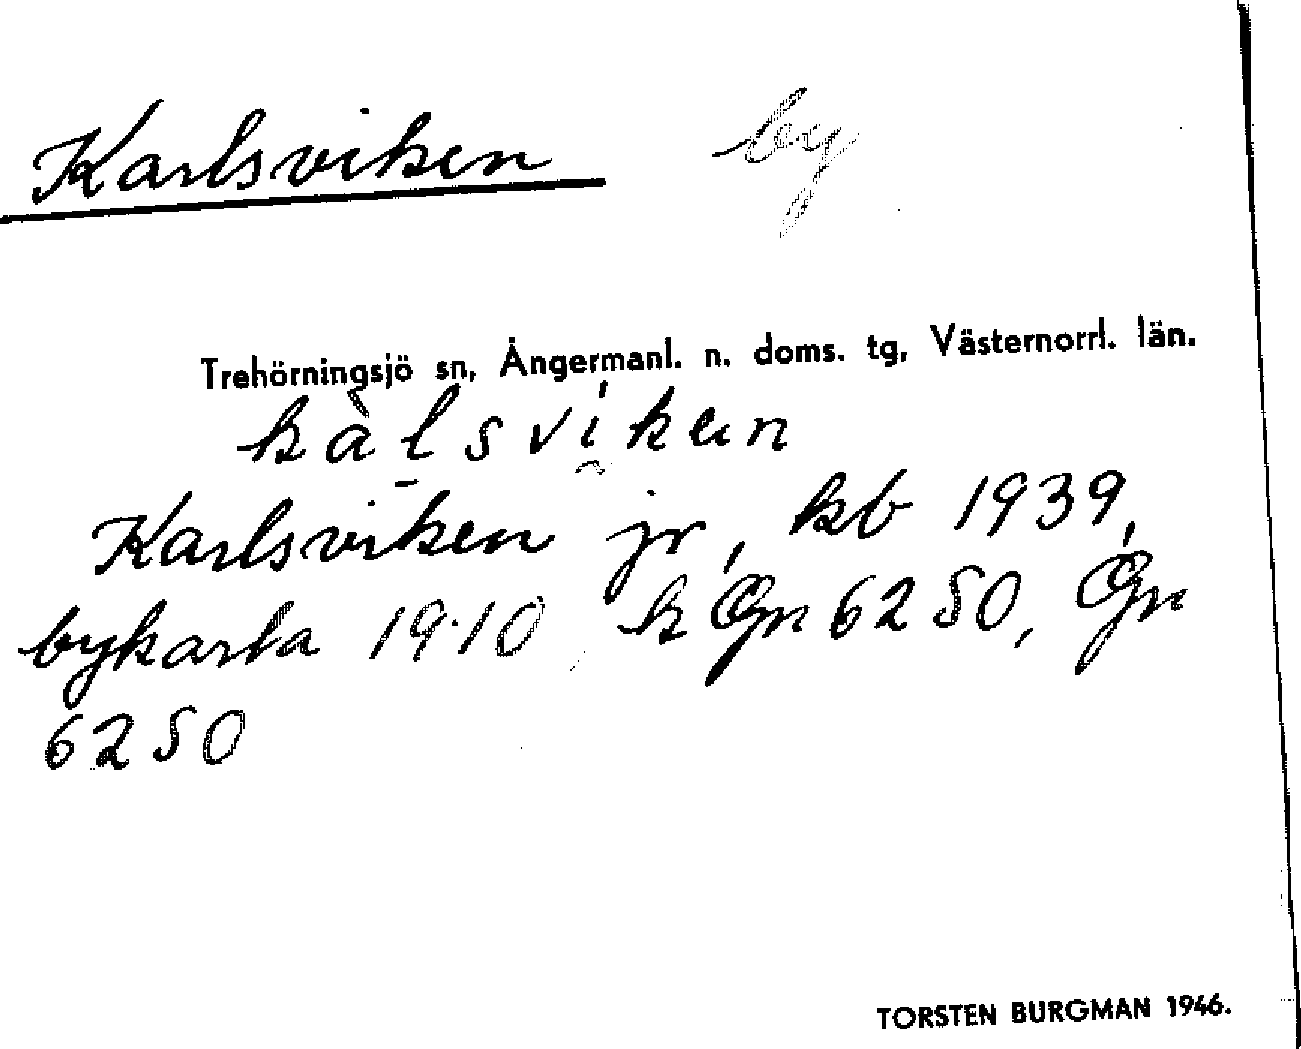 Karlsviken by
Trehörningsjö sn, Ångermanl. n. doms. tg, Västernorrl. län.
kàlsviken
Karlsviken jr, kb 1939,
bykarta 1910, k Gn 6250, Gn
6250
TORSTEN BURGMAN 1946.